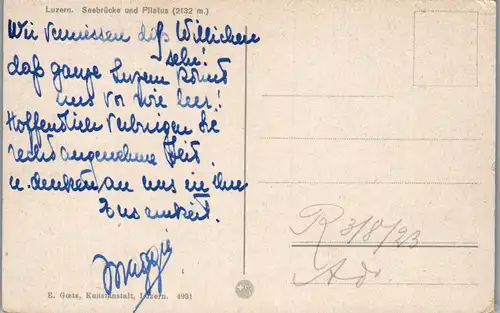 Luzern. Seebrücke und Pilatus (2132 m.)
Wir vermissen diß Willichen
sehr!
daß ganze Luzern kömt
uns vor wie leer!
Hoffentlich verbrigen Sie
recht angenehme Zeit
u. denken an uns in ihr
Einsamkeit.
Maggie
R 3/8/23
E. Goetz, Kunstanstalt, Luzern. 4951